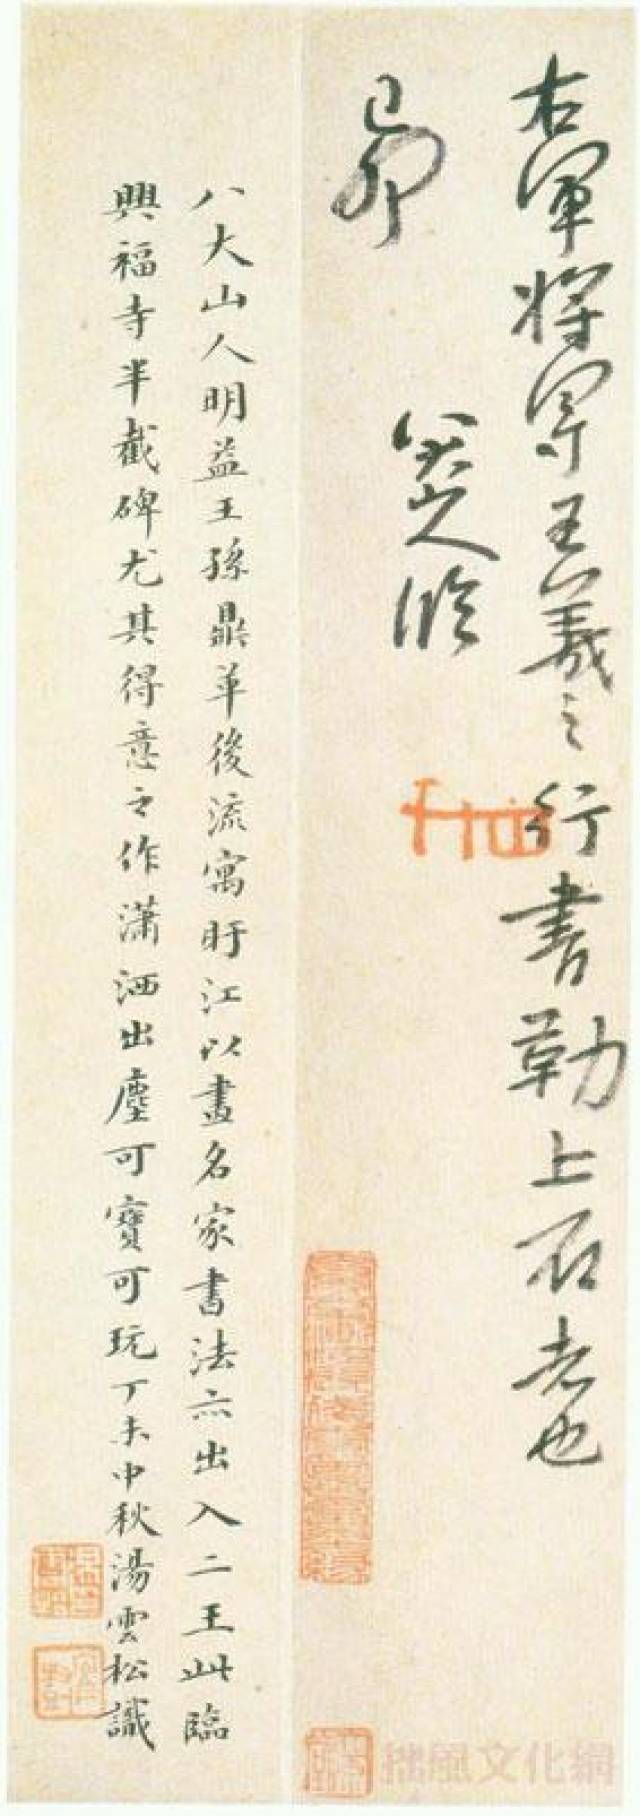 右軍將軍王羲之行書勒上石者也
己卯 八大山人臨
八大山人明益王孫鼎革後流寓盱江以畫名家書法亦出入二王此臨
興福寺半截碑尤其得意之作瀟洒出塵可寶可玩丁未中秋湯雲松識
拙風文化網